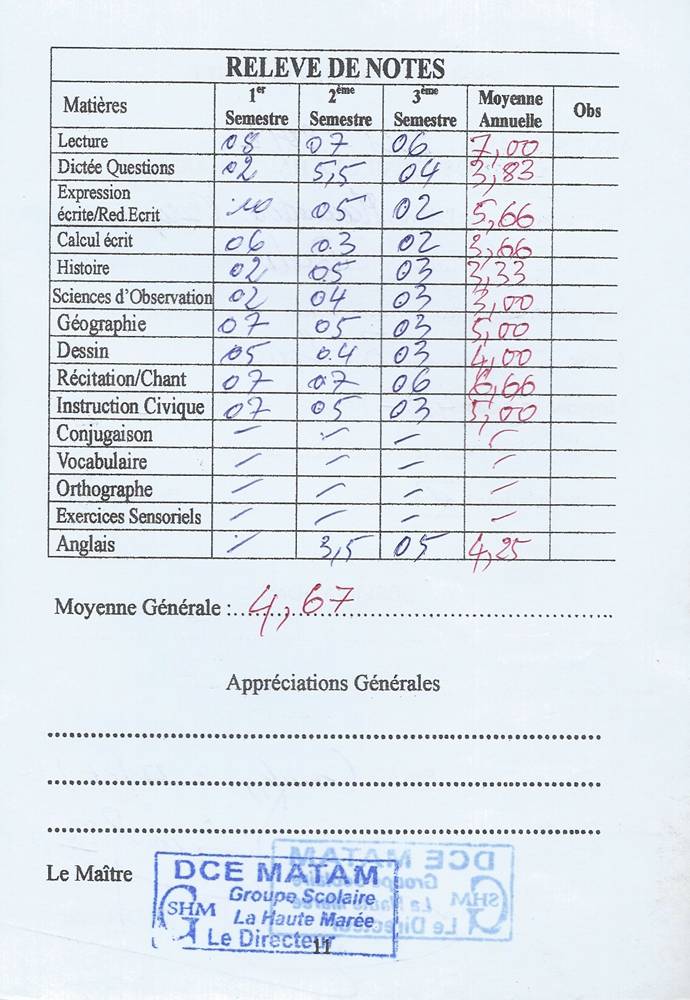 RELEVE DE NOTES
Matières 1er Semestre 2ème Semestre 3ème Semestre Moyenne Annuelle Obs
Lecture 08 07 06 7,00
Dictée Questions 02 5,5 04 3,83
Expression écrite/Red.Ecrit 10 05 02 5,66
Calcul écrit 06 03 02 3,66
Histoire 02 05 03 3,33
Sciences d'Observation 02 04 03 3,00
Géographie 07 05 03 5,00
Dessin 05 04 03 4,00
Récitation/Chant 07 07 06 6,66
Instruction Civique 07 05 03 5,00
Conjugaison – – – –
Vocabulaire – – – –
Orthographe – – – –
Exercices Sensoriels – – – –
Anglais – 3,5 05 4,25
Moyenne Générale : 4,67
Appréciations Générales
Le Maître
DCE MATAM
Groupe Scolaire
SHM La Haute Marée
Le Directeur
11